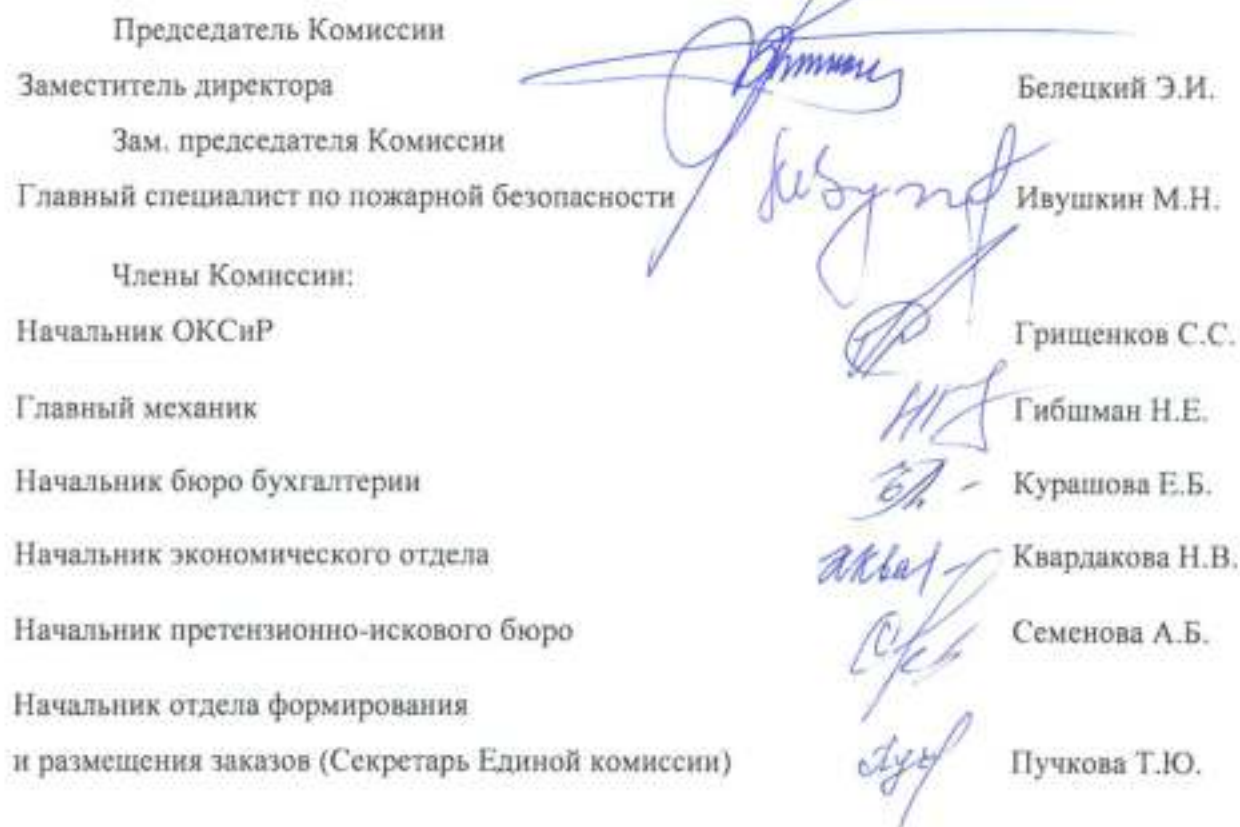 Председатель Комиссии
Заместитель директора Белецкий Э.И.
Зам. председателя Комиссии
Главный специалист по пожарной безопасности Ивушкин М.Н.
Члены Комиссии:
Начальник ОКСиР Грищенков С.С.
Главный механик Гибшман Н.Е.
Начальник бюро бухгалтерии Курашова Е.Б.
Начальник экономического отдела Квардакова Н.В.
Начальник претензионно-искового бюро Семенова А.Б.
Начальник отдела формирования
и размещения заказов (Секретарь Единой комиссии) Пучкова Т.Ю.